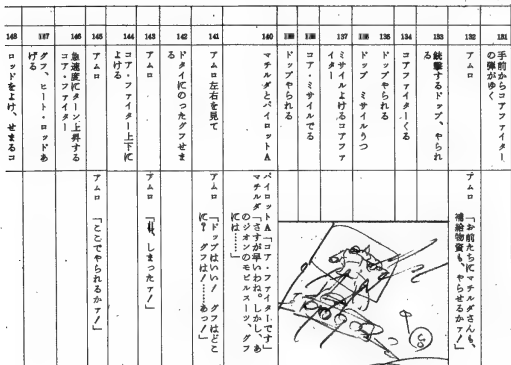 131
手前からコアファイター
の弾がゆく
132
アムロ
アムロ「お前たちにマチルダさんも、
補給物資も、やらせるかァ!」
133
銃撃するドップ、やられ
る
134
コアファイターくる
135
ドップやられる
136
ドップ ミサイルうつ
137
ミサイルよけるコアファ
イター
コア・ミサイルでる
ドップやられる
140
マチルダとパイロットA
パイロットA「コア・ファイターです」
マチルダ「さすが早いわね。しかし、あ
のジオンのモビルスーツ、グフ
には……」
141
アムロ左右を見て
アムロ「ドップはいい! グフはどこ
に? グフは!……あっ!」
142
ドダイにのったグフせま
る
143
アムロ
アムロ「しまったァ!」
144
コア・ファイター上下に
よける
145
アムロ
アムロ「ここでやられるかァ!」
146
急速度にターン上昇する
コア・ファイター
147
グフ、ヒート・ロッドあ
げる
148
ロッドをよけ、せまるコ